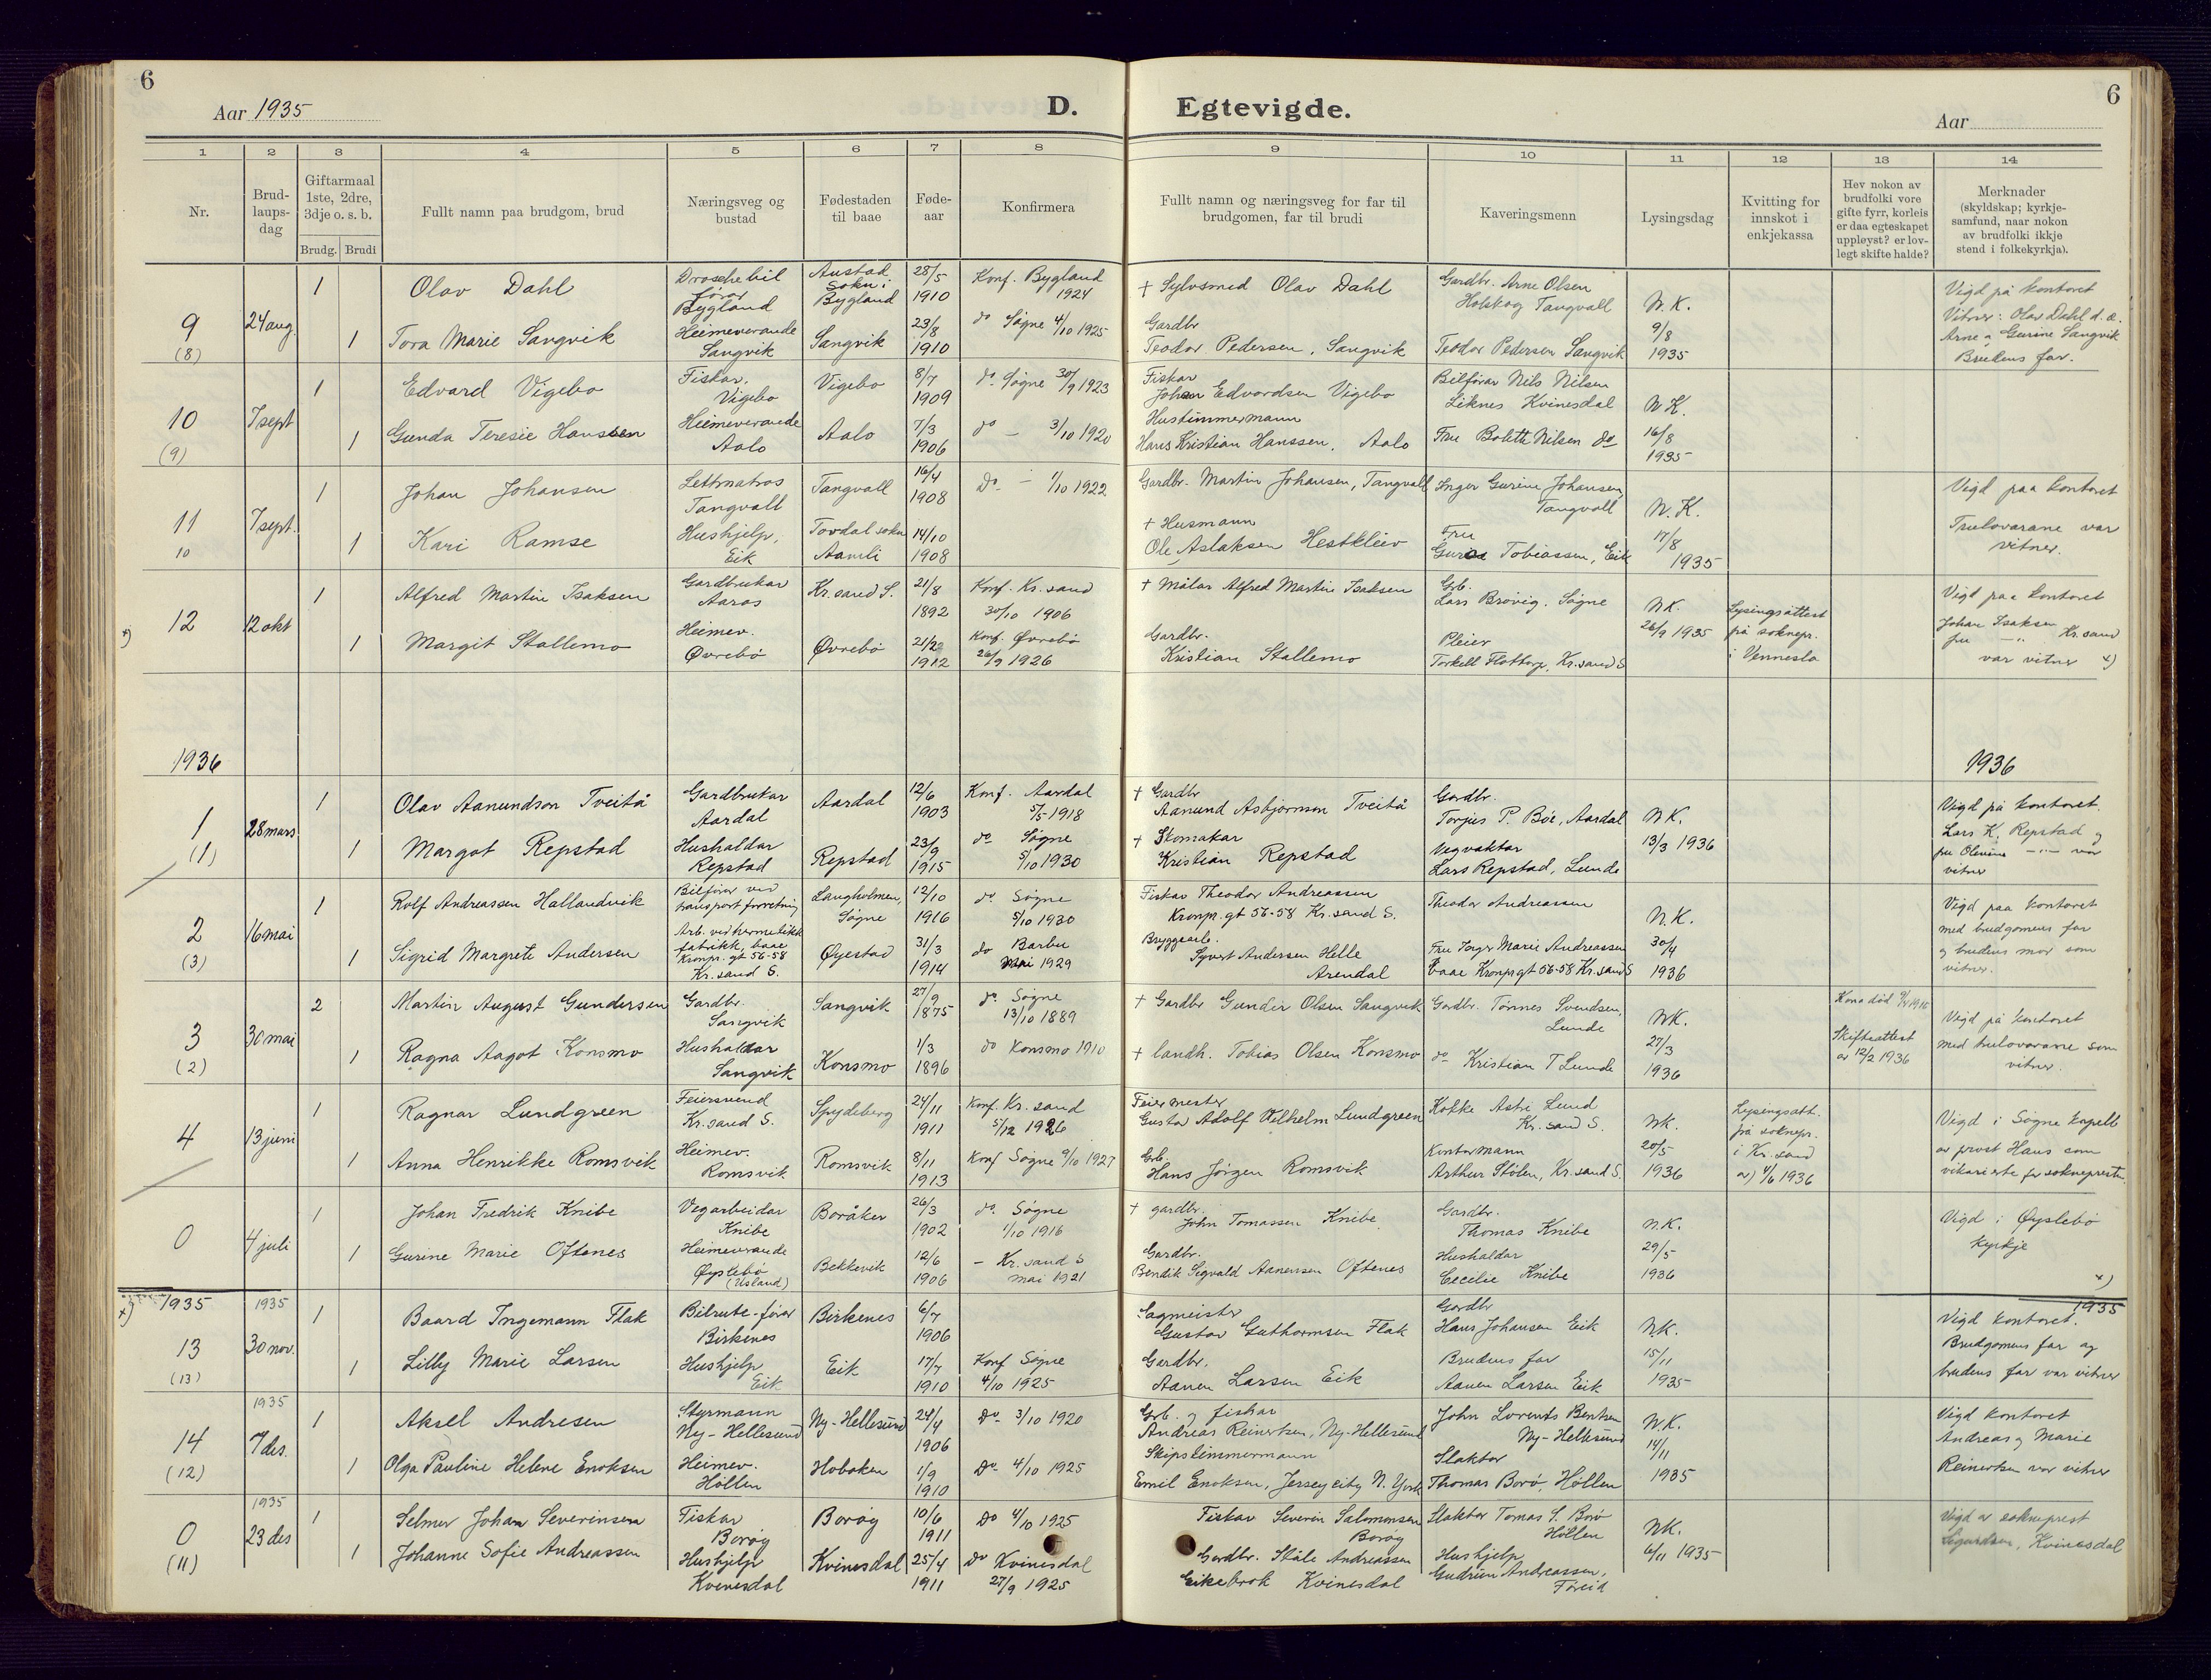 6
Aar 1935
D.
Egtevigde.
Aar
6
1 2 3 4 5 6 7 8 9 10 11 12 13 14
Nr.
Brud-
laups-
dag
Giftarmaal
1ste, 2dre,
3dje o. s. b.
Brudg. Brudi
Fullt namn paa brudgom, brud
Næringsveg og
bustad
Fødestaden
til baae
Føde-
aar
Konfirmera
Fullt namn og næringsveg for far til
brudgomen, far til brudi
Kaveringsmenn
Lysingsdag
Kvitting for
innskot i
enkjekassa
Hev nokon av
brudfolki vore
gifte fyrr, korleis
er daa egteskapet
uppløyst? er lov-
legt skifte halde?
Merknader
(skyldskap; kyrkje-
samfund, naar nokon
av brudfolki ikkje
stend i folkekyrkja).
9
(8)
24 aug.
1
Olav Dahl
Droschebil
førar
Bygland
Austad
sokn i
Bygland
28/5
1910
Konf. Bygland
1924
† Sylvsmed Olav Dahl
Gardbr. Arne Olsen
Holskog Tangvall
N.K.
9/8
1935
Vigd på kontoret
Vitner: Olav Dahl d. æ.
Arne og Gurine Sangvik
Brudens far.
1
Tora Marie Sangvik
Heimeverande
Sangvik
Sangvik
23/8
1910
do Søgne 4/10 1925
Gardbr
Teodor Pedersen, Sangvik
Teodor Pedersen Sangvik
10
(9)
7 sept
1
Edvard Vigebo
Fiskar,
Vigebo
Vigebo
8/7
1909
do Søgne 30/9 1923
Fiskar
Johan Edvardsen Vigebo
Bilførar Nils Nilsen
Liknes Kvinesdal
N.K.
16/8
1935
1
Gunda Teresie Hanssen
Heimeverande
Aalo
Aalo
7/3
1906
do — 3/10 1920
Hustimmermann
Hans Kristian Hanssen, Aalo
Fru Bolette Nilsen do
11
10
7 sept.
1
Johan Johansen
Lettmatros
Tangvall
Tangvall
16/4
1908
Do — 1/10 1922
Gardbr. Martin Johansen, Tangvall
Inger Gurine Johansen,
Tangvall
N.K.
17/8
1935
Vigd paa kontoret
Trulovarane var
vitner.
1
Kari Ramse
Hushjelp,
Eik
Tovdal sokn
Aamli
14/10
1908
† Husmann
Ole Aslaksen Hestkleiv
Fru
Tobiassen, Eik
x)
12
12 okt
1
Alfred Martin Isaksen
Gardbrukar
Aaros
Kr.sand S.
21/8
1892
Konf. Kr. sand
30/10 1906
† Målar Alfred Martin Isaksen
Grb.
Lars Brøvig. Søgne
N.K.
26/9 1935
Lysingsattest
på soknepr.
i Vennesla
Vigd paa kontoret
Johan Isaksen
fru —"— Kr.sand
var vitner x)
1
Margit Stallemo
Heimev.
Øvrebø
Øvrebø
1912
Konf. Øvrebø
26/9 1926
Gardbr.
Kristian Stallemo
Pleier
Torkell Flottorp, Kr.sand S
1936
1936
1
(1)
28 mars
1
Olav Aanundson Tveitå
Gardbrukar
Aardal
Aardal
12/6
1903
Konf. Aardal
5/5 1918
† Gardbr
Aanund Asbjørnson Tveitå
Gardbr.
Torjus P. Bøe, Aardal
N.K.
13/3 1936
Vigd på kontoret.
Lars K. Repstad og
fru Olevine —"— var
vitner
1
Margot Repstad
Hushaldar
Repstad
Repstad
23/9
1915
do Søgne
5/10 1930
† Skomakar
Kristian Repstad
Vegvaktar
Lars Repstad, Lunde
2
(3)
16 mai
1
Rolf Andreassen Hallandvik
Bilførar ved
transport forretning
Langholmen,
Søgne
12/10
1916
do Søgne
5/10 1930
Fiskar Theodor Andreassen
Kronp. gt 56-58 Kr.sand S.
Theodor Andreassen
N.K.
30/4
1936
Vigd paa kontoret
med brudgomens far
og brudens mor som
vitner.
1
Sigrid Margrete Andersen
Arb. ved hermetikk
fabrikk, baae
Kronpr. gt 56-58
Kr. sand S.
Øyestad
31/3
1914
do Barbu
Mai 1929
Bryggearb.
Syvert Andersen Helle
Arendal
Fru Inger Marie Andreassen
baae Kronpr gt 56-58 Kr.sand S
3
(2)
30 mai
2
Martin August Gundersen
Gardbr.
Sangvik
Sangvik
27/9
1875
do Søgne
13/10 1889
† Gardbr Gunder Olsen Sangvik
Gardbr. Tønnes Svendsen,
Lunde
NK.
27/3
1936
Kona død
Skifteattest
av 12/2 1936
Vigd på kontoret
med trulovarane som
vitner.
1
Ragna Aagot Konsmo
Hushaldar
Sangvik
Konsmo
1/3
1896
do Konsmo 1910
† landh. Tobias Olsen Konsmo
do Kristian T Lunde
4
13 juni
1
Ragnar Lundgreen
Feiersvend
Kr. sand S.
Spydeberg
24/11
1911
Konf. Kr. sand
5/12 1926
Feiermester
Gustav Adolf Vilhelm Lundgreen
Kokke Astri Lund
Kr. sand S.
NK.
20/5
1936
Lysingsatt.
frå soknepr.
i Kr. sand
av 4/6 1936
Vigd i Søgne kapell
av prost Haus som
vikarierte for soknepresten
1
Anna Henrikke Romsvik
Heimev.
Romsvik
Romsvik
8/11
1913
Konf Søgne 9/10 1927
Grb.
Hans Jørgen Romsvik
Kontormann
Arthur Stølen, Kr.sand S.
0
4 juli
1
Johan Fredrik Knibe
Vegarbeidar
Knibe
Boråker
26/3
1902
do Søgne
1/10 1916
† gardbr.
John Tomassen Knibe
Gardbr.
Thomas Knibe
N.K.
29/5
1936
Vigd i Øyslebø
Kyrkje
1
Gurine Marie Oftenes
Heimeverande
Øyslebø
(Usland)
Bekkevik
12/6
1906
— Kr. sand S
mai 1921
Gardbr.
Bendik Sigvald Aanensen Oftenes
Hushaldar
Cecelie Knibe
x)
x) 1935
1935
1935
13
(13)
30 nov.
1
Baard Ingemann Flak
Bilrute-fører
Birkenes
Birkenes
6/7
1906
Sagmeister
Gustav Guthormsen Flak
Gardbr
Hans Johansen Eik
NK.
15/11
1935
Vigd kontoret.
Brudgomens far og
brudens far var vitner
1
Lilly Marie Larsen
Hushjelp
Eik
Eik
17/7
1910
Konf Søgne
4/10 1925
Gardbr.
Aanen Larsen Eik
Brudens far
Aanen Larsen Eik
1935
14
(12)
7 des.
1
Aksel Andresen
Styrmann
Ny-Hellesund
Ny-Hellesund
24/4
1906
Do 3/10 1920
Grb. og fiskar
Andreas Reinertsen, Ny-Hellesund
John Lorents Bentsen
Ny-Hellesund
N.K.
14/11
1935
Vigd kontoret
Andreas og Marie
Reinertsen var vitner
1
Olga Pauline Helene Enoksen
Heimev.
Höllen
Hoboken
1/9
1910
Do 4/10 1925
Skipstimmermann
Emil Enoksen, Jersey city N. York
Slaktar
Thomas Borø, Höllen
1935
0
(11)
23 des
1
Selmer Johan Severinsen
Fiskar
Borøy
Borøy
10/6
1911
Do 4/10 1925
Fiskar Severin Salomonsen
Borøy
Slaktar Tomas S. Borø
Höllen
NK.
6/11 1935
Vigd av sokneprest
Sigurdson, Kvinesdal
1
Johanne Sofie Andreassen
Hushjelp
Kvinesdal
Kvinesdal
25/4
1911
Do Kvinesdal
27/9 1925
Gardbr. Ståle Andreassen
Eikebrok Kvinesdal
Hushjelp
Gudrun Andreassen,